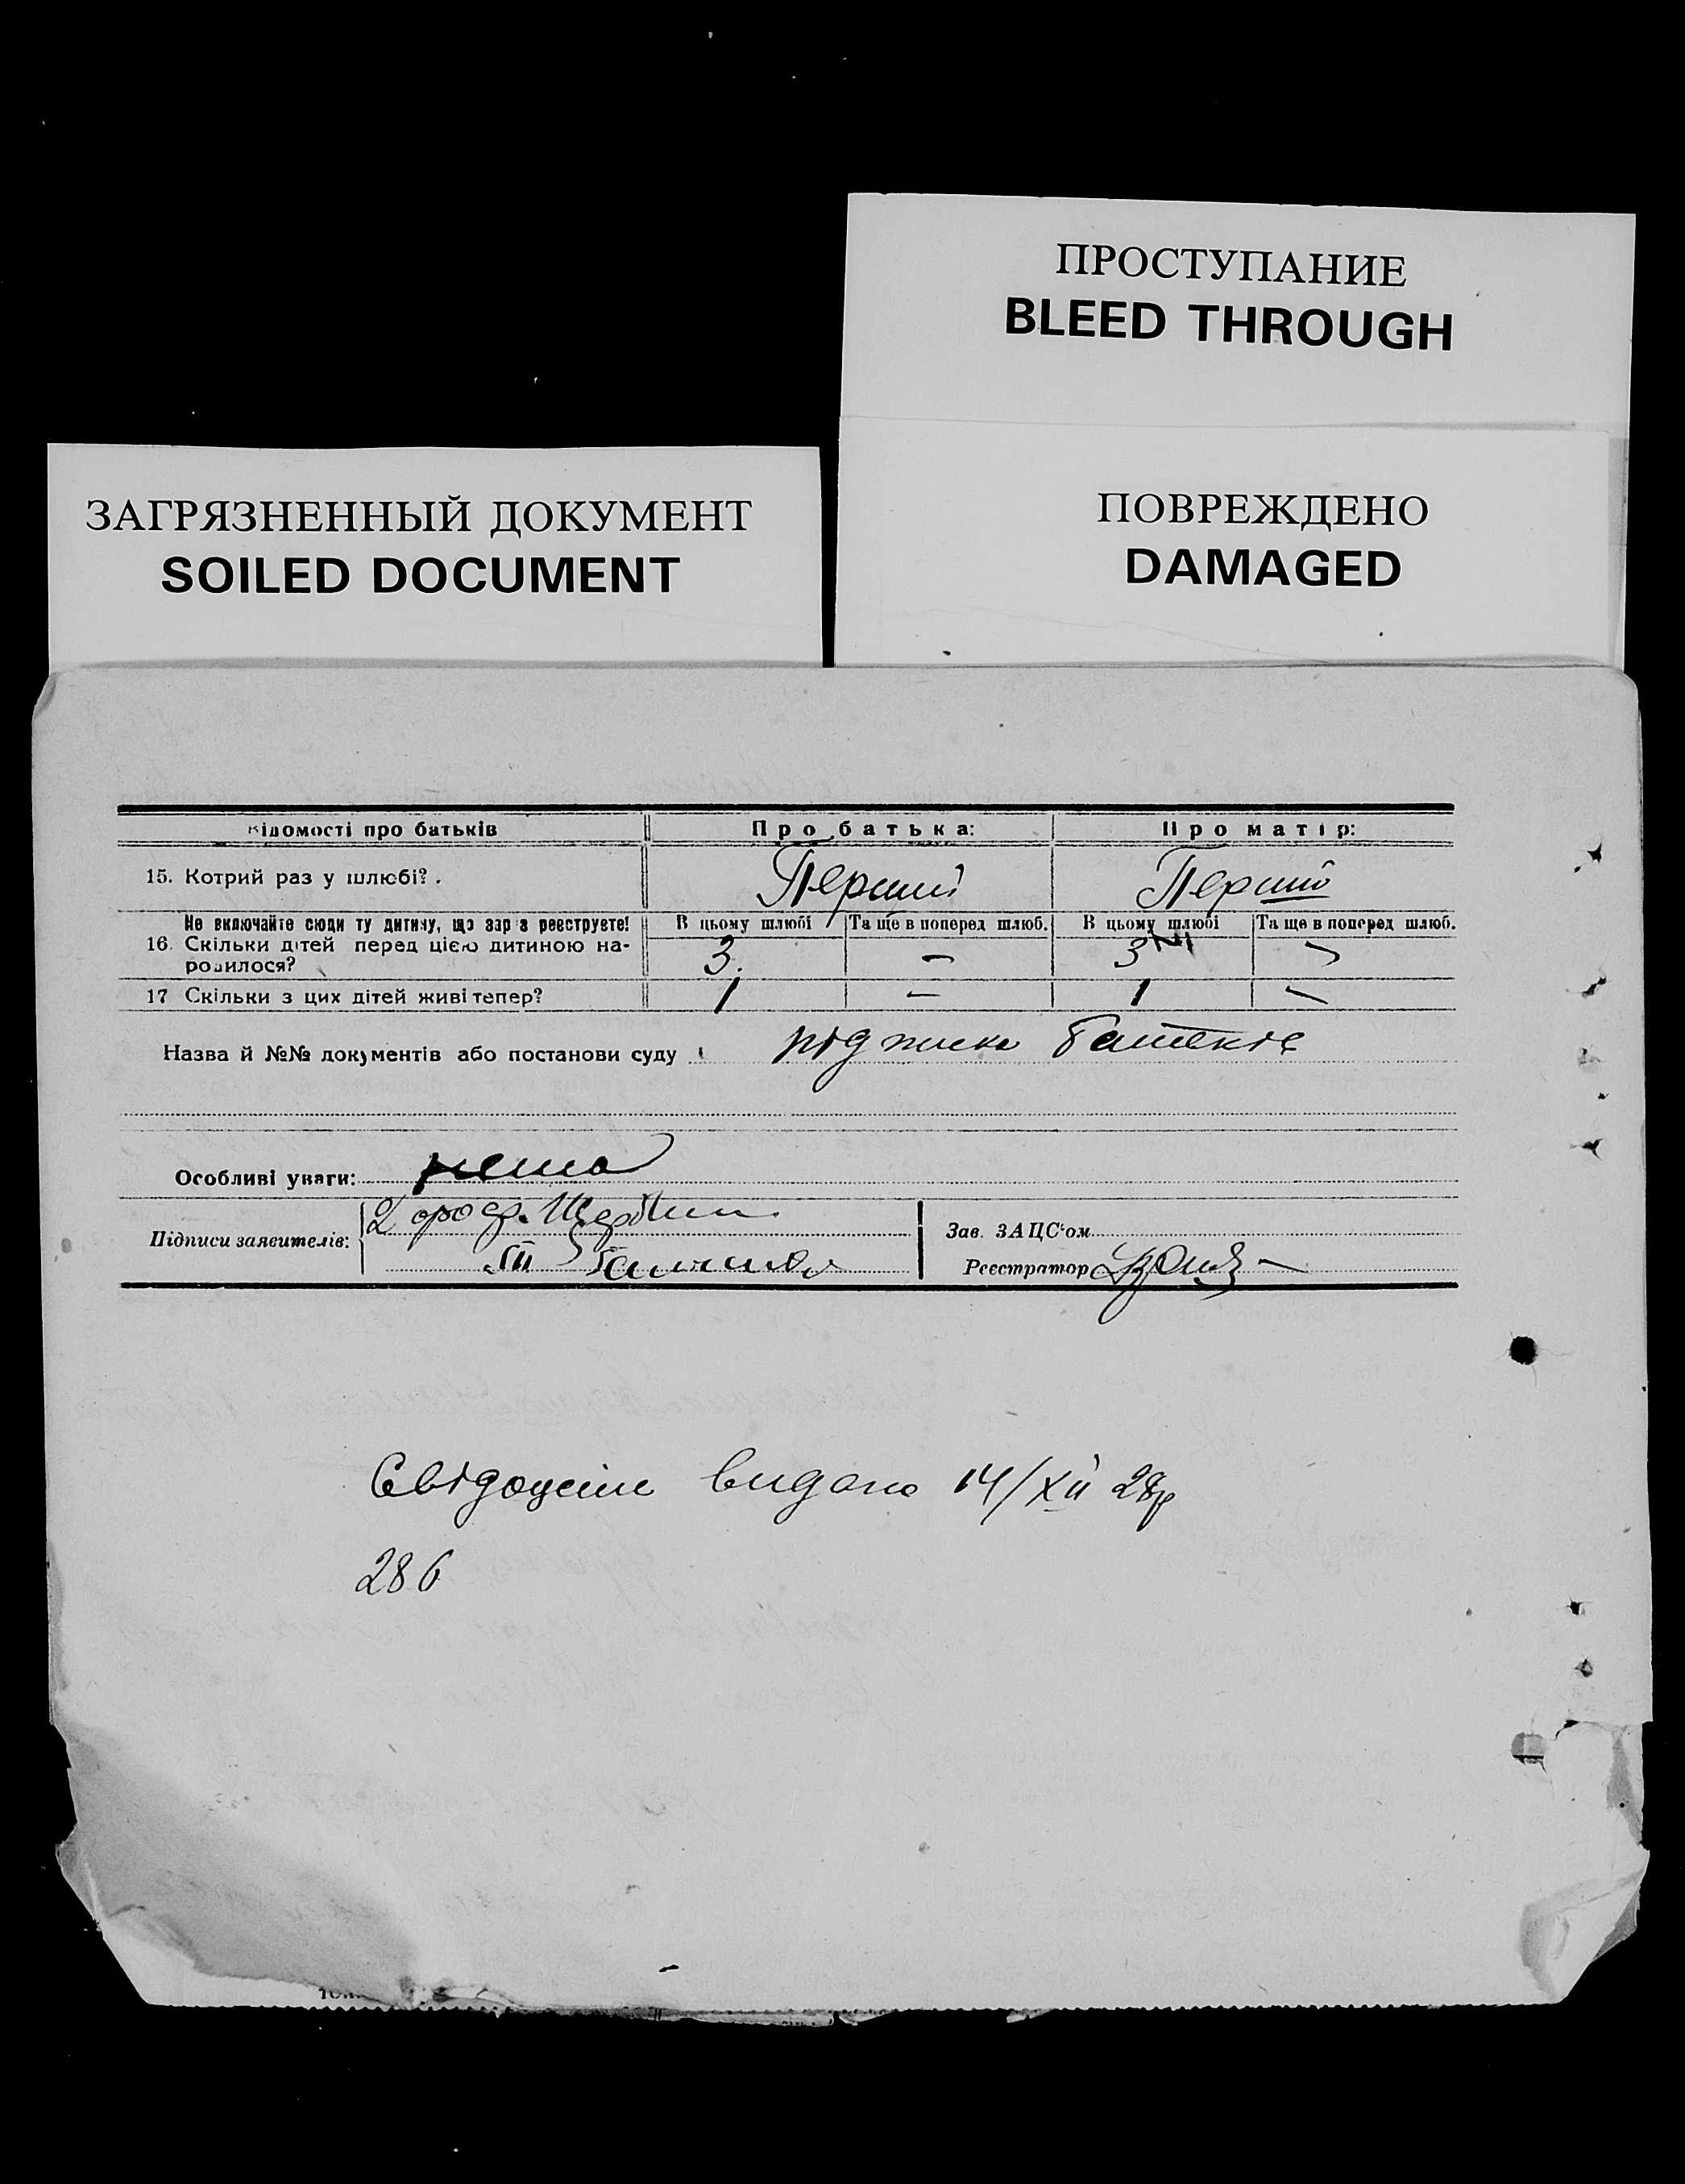 ПРОСТУПАНИЕ
BLEED THROUGH
ЗАГРЯЗНЕННЫЙ ДОКУМЕНТ
SOILED DOCUMENT
ПОВРЕЖДЕНО
DAMAGED
Відомості про батьків Про батька: Про матір:
15. Котрий раз у шлюбі? Перший Перший
Не включайте сюди ту дитину, що зараз реєструєте! В цьому шлюбі Та ще в поперед шлюб. В цьому шлюбі Та ще в поперед шлюб.
16. Скільки дітей перед цією дитиною на-
родилося? 3. — 3 —
17 Скільки з цих дітей живі тепер? 1 — 1 —
Назва й №№ документів або постанови суду підписка батьків
Особливі уваги: нема
Підписи заявителів:
Зав. ЗАЦС'ом
Реєстратор
Свідоцтво видано 14/XII 28р
286